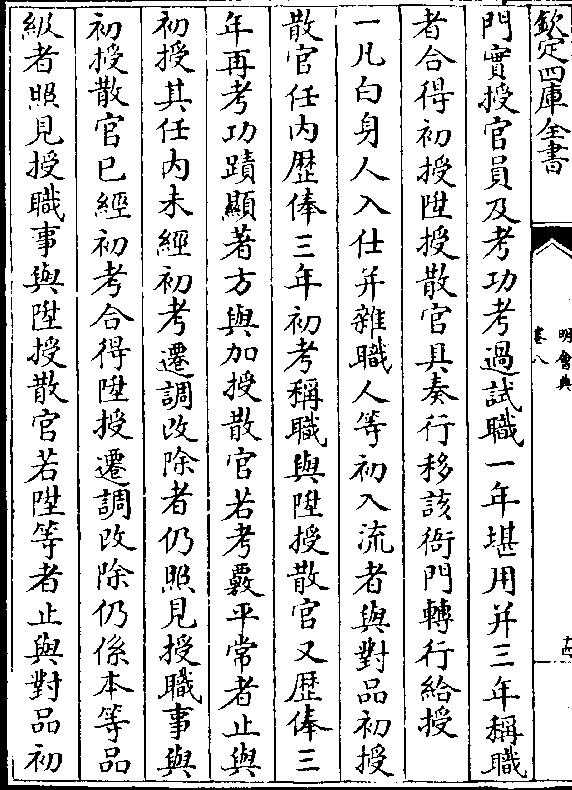 欽定四庫全書
明會典
卷八
十四
門實授官員及考功考過試職一年堪用并三年稱職
者合得初授陞授散官具奏行移該衙門轉行給授
一凡白身人入仕并雜職人等初入流者與對品初授
散官任内歴俸三年初考稱職與陞授散官又歴俸三
年再考功蹟顯著方與加授散官若考覈平常者止與
初授其任内未經初考遷調改除者仍照見授職事與
初授散官已經初考合得陞授遷調改除仍係本等品
級者照見授職事與陞授散官若陞等者止與對品初